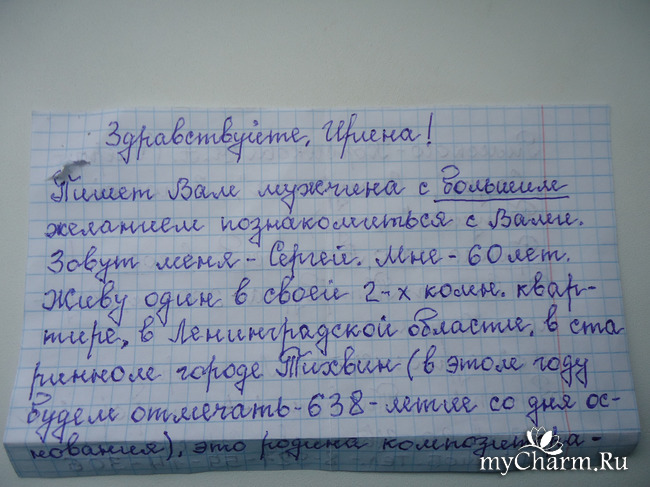 Здравствуйте, Ирина!
Пишет Вам мужчина с большим
желанием познакомиться с Вами.
Зовут меня - Сергей. Мне - 60 лет.
Живу один в своей 2-х комн. квар-
тире, в Ленинградской области, в ста
ринном городе Тихвин (в этом году
будем отмечать - 638 - летие со дня ос-
нования), это родина композитора -
myCharm.Ru